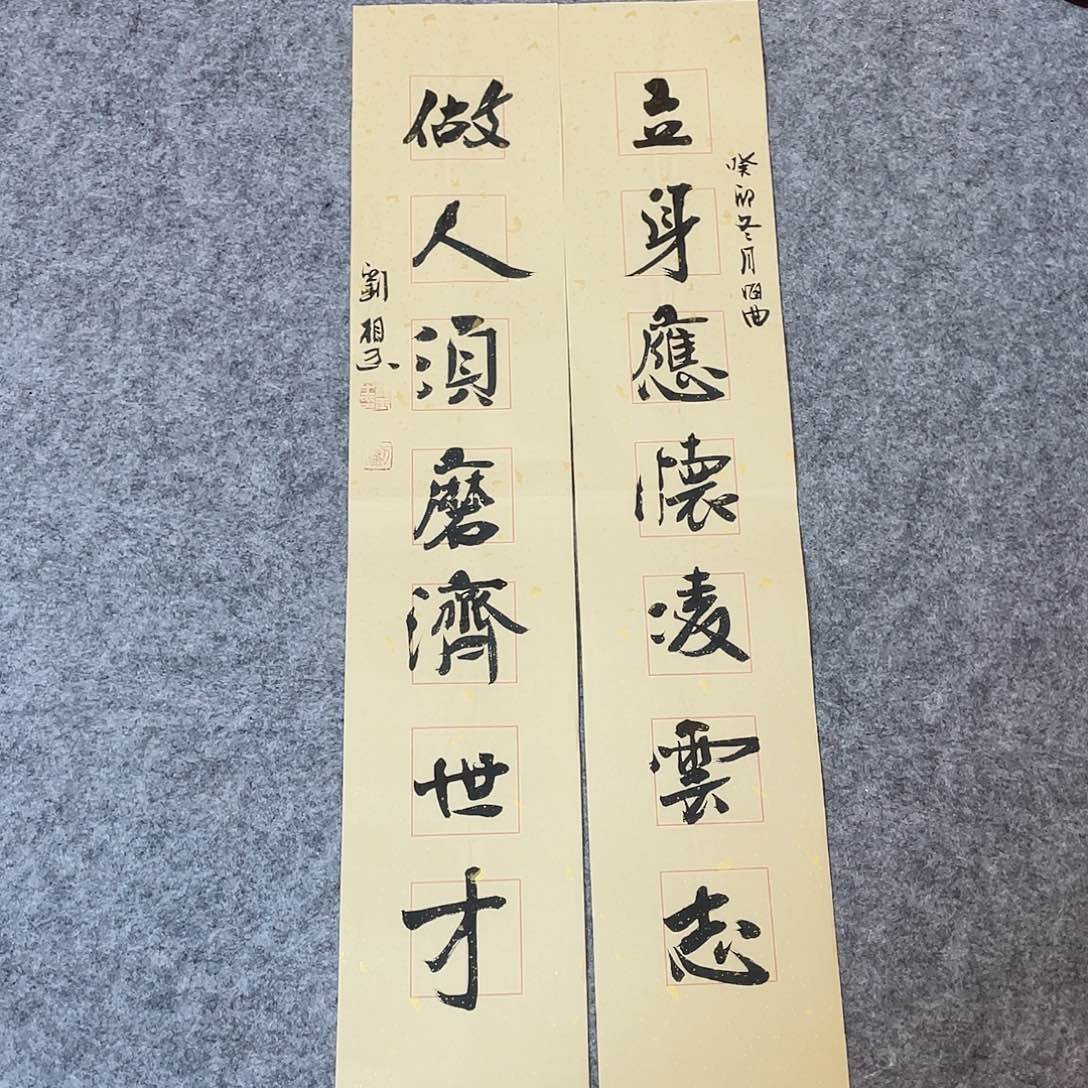 癸卯冬月
立身應懷凌雲志
做人須磨濟世才
劉